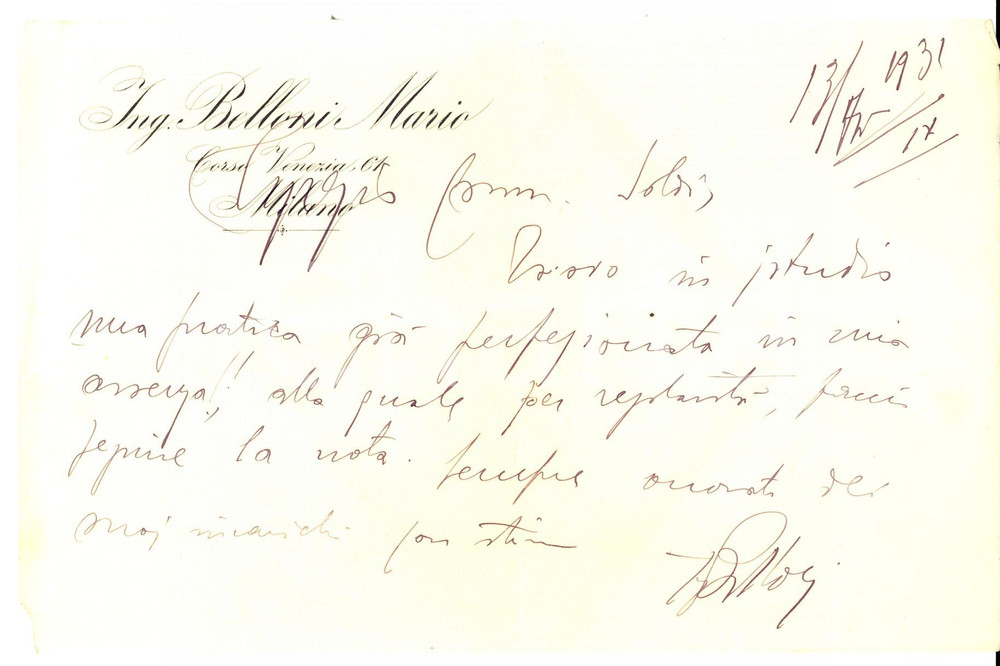 Ing. Belloni Mario
Corso Venezia, 61
Milano
13/ 1931
IX
Comm. Soldi,
Trovo in studio
una pratica già perfezionata in mia
assenza!! alla quale per regolarità, faccio
seguire la nota. Sempre onorato dei
suoi incarichi con stima
MBelloni